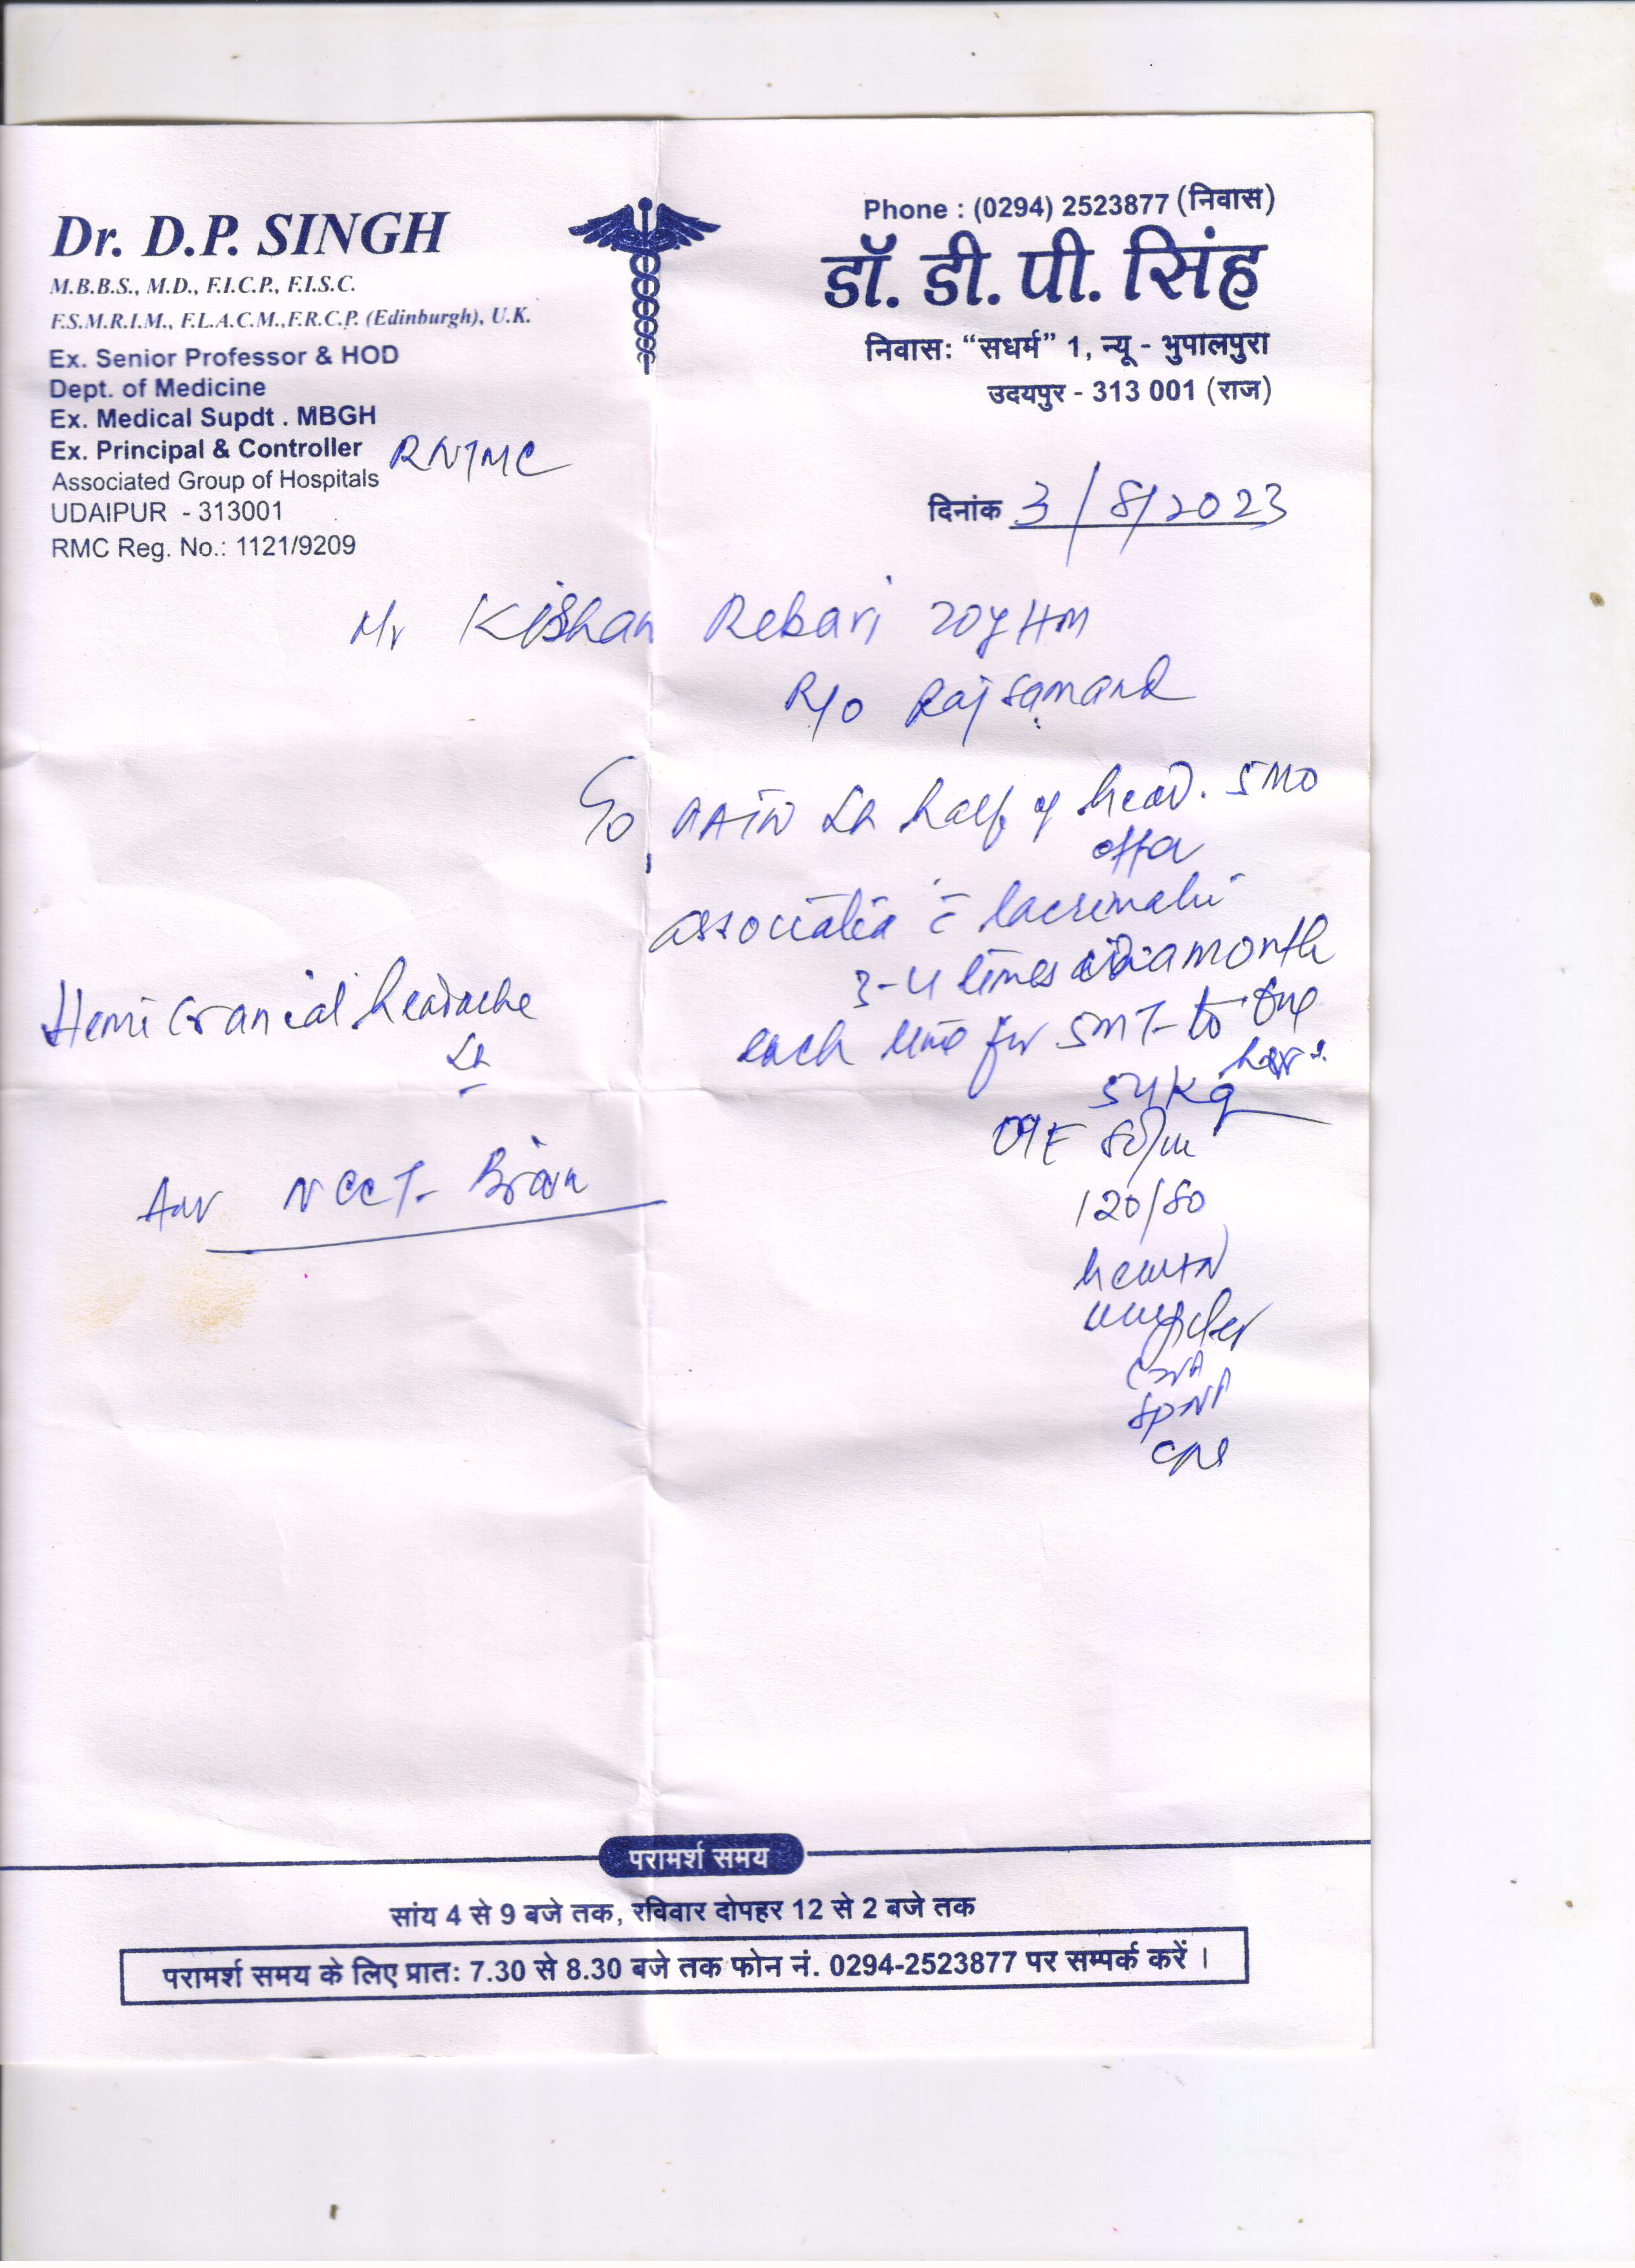 Dr. D.P. SINGH
M.B.B.S., M.D., F.I.C.P., F.I.S.C.
F.S.M.R.I.M., F.L.A.C.M.,F.R.C.P. (Edinburgh), U.K.
Ex. Senior Professor & HOD
Dept. of Medicine
Ex. Medical Supdt . MBGH
Ex. Principal & Controller RNTMC
Associated Group of Hospitals
UDAIPUR - 313001
RMC Reg. No.: 1121/9209
Phone : (0294) 2523877 (निवास)
डॉ. डी. पी. सिंह
निवास: “सधर्म” 1, न्यू - भुपालपुरा
उदयपुर - 313 001 (राज)
दिनांक 3/8/2023
Mr Kishan Rebari 20y HM
R/o Rajsamand
C/o PAIN Lt half of head. 5 MO
associated c̄ lacrimati
3-4 times a month
each time for 5 MT to one
hour.
54 Kg
O/E 80/m
120/80
Hemicranial headache
Lt
Adv NCCT- Brain
परामर्श समय
सांय 4 से 9 बजे तक, रविवार दोपहर 12 से 2 बजे तक
परामर्श समय के लिए प्रात: 7.30 से 8.30 बजे तक फोन नं. 0294-2523877 पर सम्पर्क करें ।